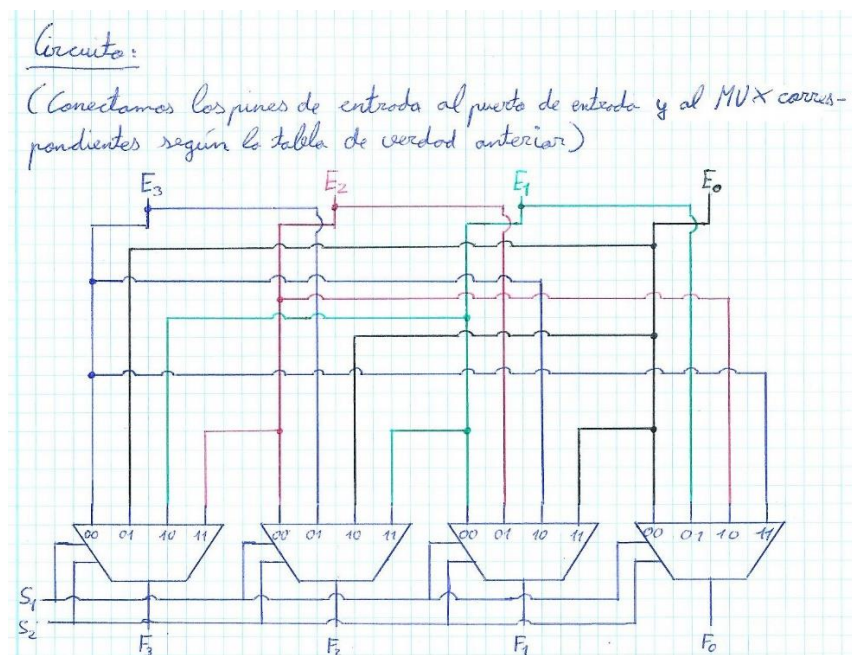 Circuito:
(Conectamos los pines de entrada al puerto de entrada y al MUX corres-
pondientes según la tabla de verdad anterior)
E3 E2 E1 E0
00 01 10 11 00 01 10 11 00 01 10 11 00 01 10 11
S1
S2
F3 F2 F1 F0